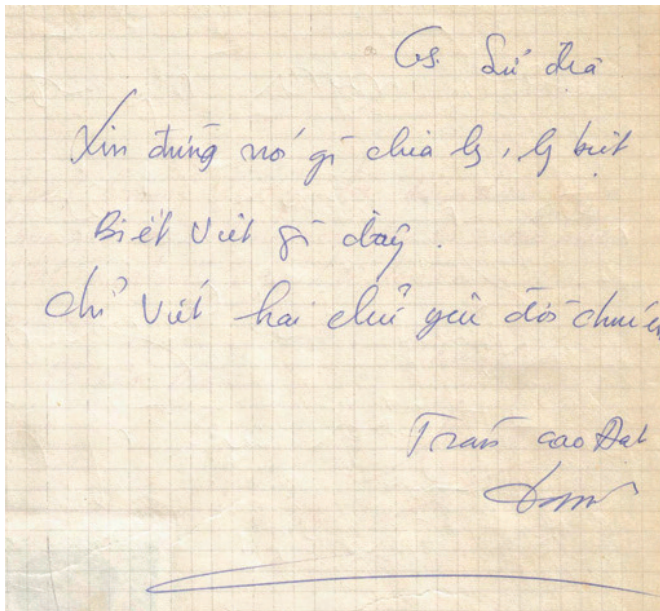 Gs. Sử địa
Xin đừng nói gì chia ly, ly biệt
Biết Viết gì đây.
Chỉ Viết hai chữ yêu đời
Trần Cao Đạt